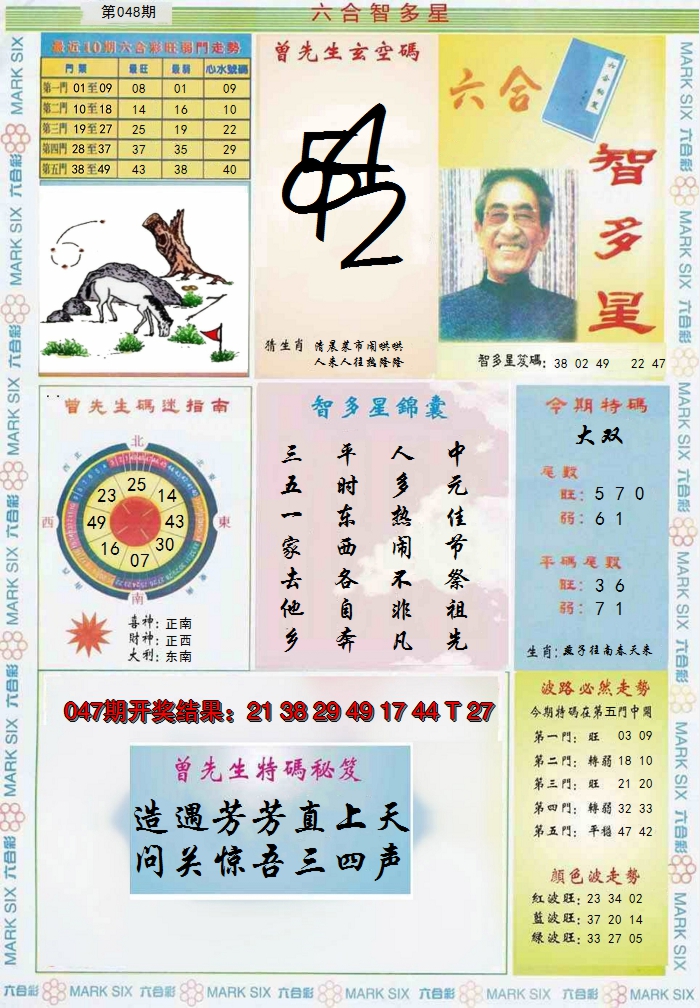 第048期
六合智多星
最近10期六合彩旺弱門走勢
門類 最旺 最弱 心水號碼
第一門 01至09 08 01 09
第二門 10至18 14 16 10
第三門 19至27 25 19 22
第四門 28至37 37 35 29
第五門 38至49 43 38 40
曾先生玄空碼
猜生肖 清晨菜市闹哄哄
人来人往热隆隆
六合
六合秘笈
智多星
智多星笈碼: 38 02 49 22 47
曾先生碼迷指南
北
西北
東北
西
東
南
25
14
43
30
07
16
49
23
喜神: 正南
財神: 正西
大利: 东南
智多星錦囊
中元佳节祭祖先
人多热闹不非凡
平时东西各自奔
三五一家去他乡
今期特碼
大双
尾數
旺: 5 7 0
弱: 6 1
平碼尾數
旺: 3 6
弱: 7 1
生肖: 燕子往南春天来
047期开奖结果: 21 38 29 49 17 44 T 27
曾先生特碼秘笈
造遇芳芳直上天
问关惊吾三四声
波路必然走勢
今期特碼在第五門中開
第一門: 旺 03 09
第二門: 轉弱 18 10
第三門: 旺 21 20
第四門: 轉弱 32 33
第五門: 平穩 47 42
顏色波走勢
紅波旺: 23 34 02
藍波旺: 37 20 14
綠波旺: 33 27 05
MARK SIX 六合彩